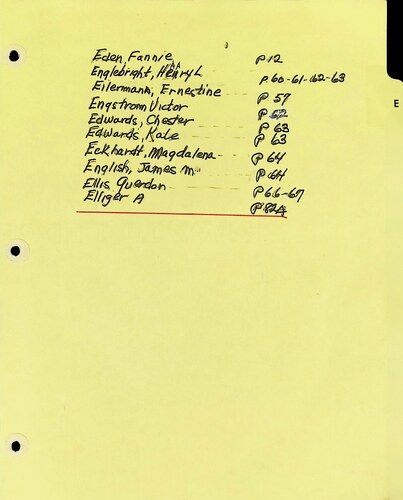 Eden, Fannie P12
Englebright, Henry L P.60-61-162-63
Eilermann, Ernestine P 57
Engstrom, Victor P 52
Edwards, Chester P 63
Edwards, Kate P 63
Eckhardt, Magdalena P 64
English, James M P 64
Ellis Querdon P66-67
Elliger A P 82A
E